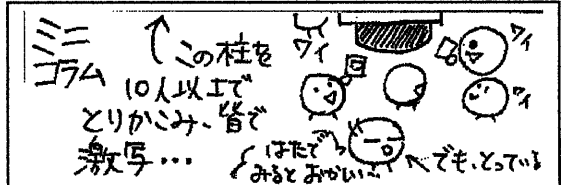 ミニ
コラム
この柱を
10人以上で
とりかこみ、皆で
激写…
ワイ
ワイ
ワイ
はたで
みるとおかしい〜
でも、とっている